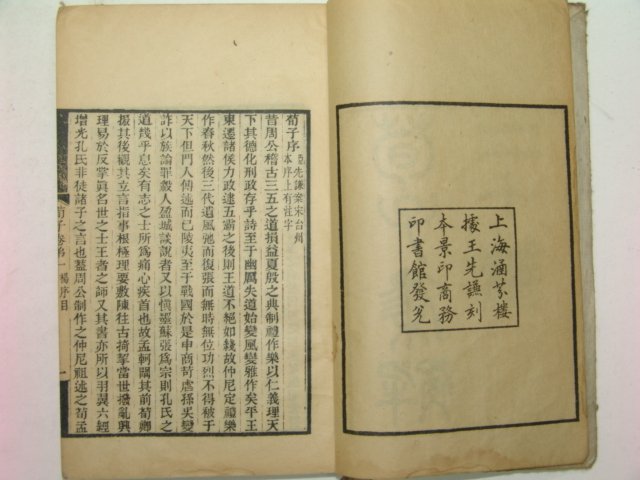 上海涵芬樓
據王先謙刻
本景印商務
印書館發兌
荀子序
先謙案宋台州
本序上有注字
昔周公稽古三五之道損益夏殷之典制禮作樂以仁義理天
下其德化刑政存乎詩至于幽厲失道始變風變雅作矣平王
東遷諸侯力政逮五霸之後則王道不絕如綫故仲尼定禮樂
作春秋然後三代遺風弛而復張而無時無位功烈不得被于
天下但門人傳述而已陵夷至于戰國於是申商苛虐孫吳變
詐以族論罪殺人盈城談說者又以慎墨蘇張爲宗則孔氏之
道幾乎息矣有志之士所爲痛心疾首也故孟軻闢其前荀卿
振其後觀其立言指事根極理要敷陳往古掎挈當世撥亂興
理易於反掌眞名世之士王者之師又其書亦所以羽翼六經
增光孔氏非徒諸子之言也蓋周公制作之仲尼祖述之荀孟
荀子
序目
一